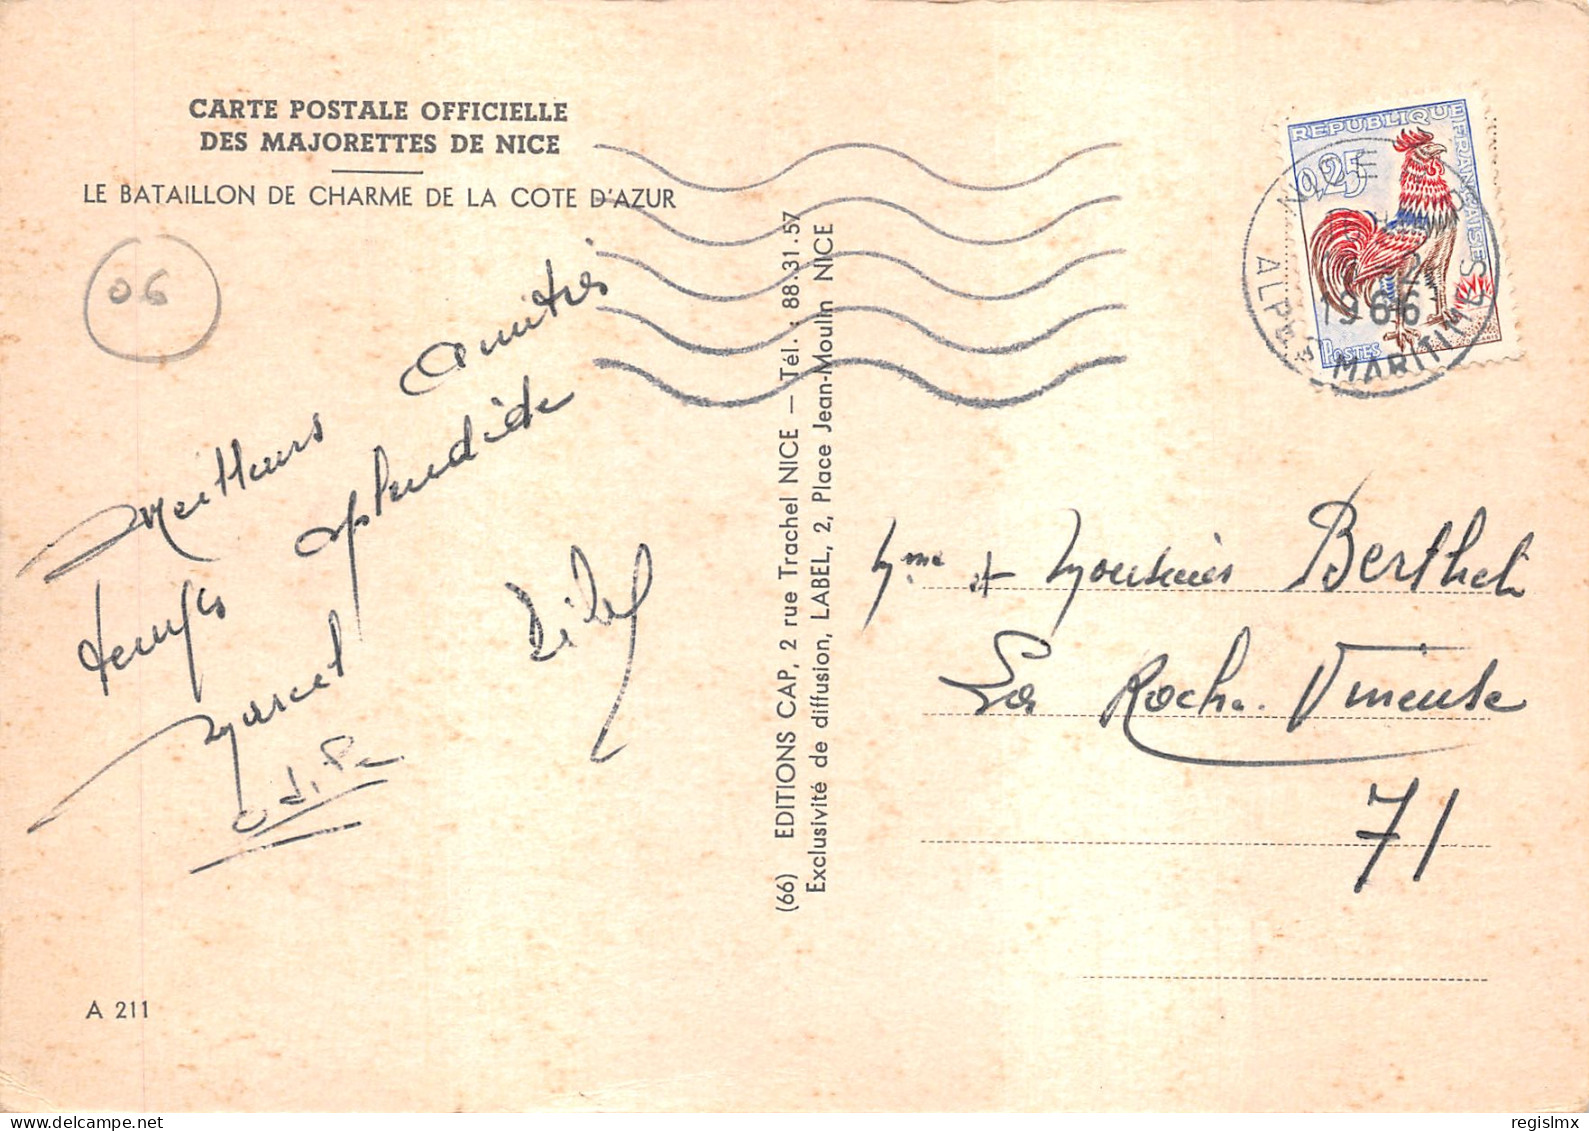 CARTE POSTALE OFFICIELLE
DES MAJORETTES DE NICE
LE BATAILLON DE CHARME DE LA COTE D'AZUR
06
Meilleurs Amitiés
temps splendide
Marcel
Odile
A 211
(66) EDITIONS CAP, 2 rue Trachel NICE — Tél. : 88.31.57
Exclusivité de diffusion, LABEL, 2, Place Jean-Moulin NICE
REPUBLIQUE FRANÇAISE
0,25
POSTES
NICE
1966
ALPES MARITIMES
Mme et Monsieur Berthet
La Roche Vineuse
71
regislmx